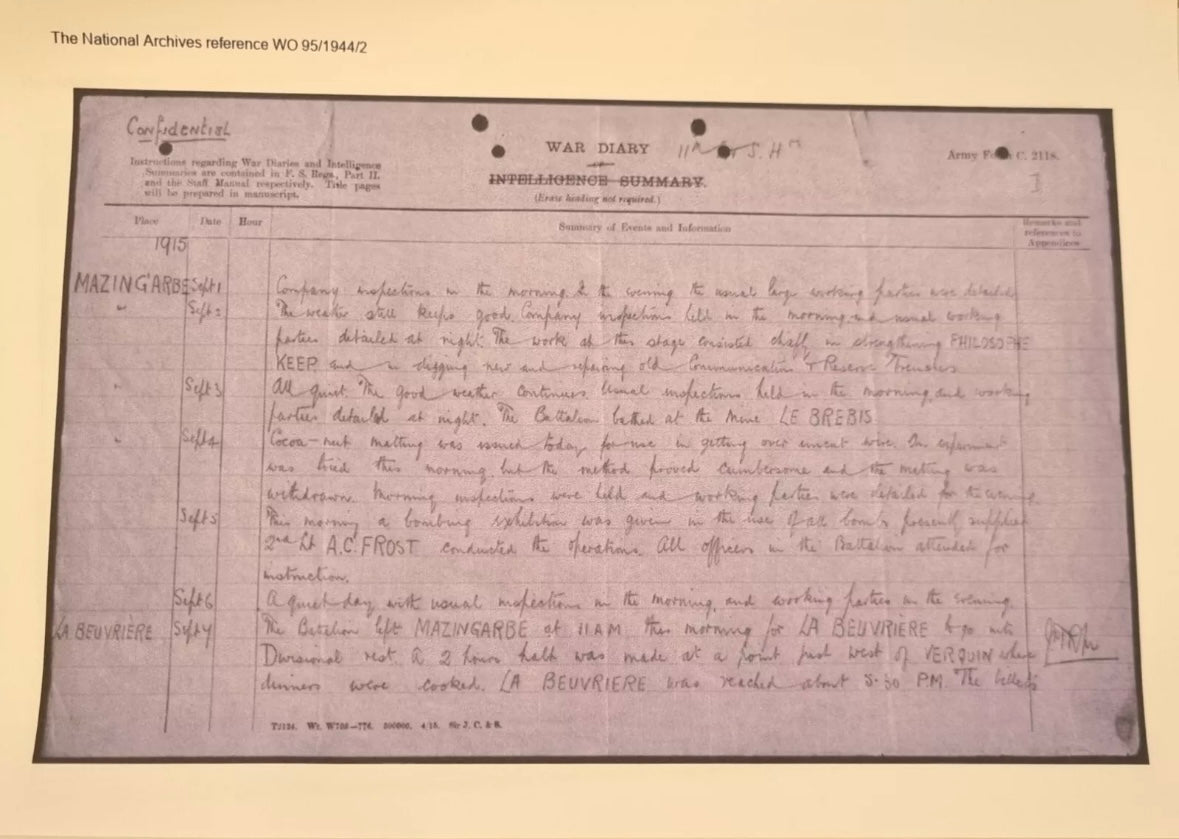 The National Archives reference WO 95/1944/2
Confidential
WAR DIARY
Army Form C. 2118.
Instructions regarding War Diaries and Intelligence
Summaries are contained in F. S. Regs., Part II.
and the Staff Manual respectively. Title pages
will be prepared in manuscript.
INTELLIGENCE SUMMARY.
(Erase heading not required.)
Place Date Hour Summary of Events and Information Remarks and
references to
Appendices
1915
MAZINGARBE Sept 1 Company inspections in the morning. In the evening the usual large working parties were detailed
" Sept 2 The weather still keeps good. Company inspections held in the morning and usual working
parties detailed at night. The work at this stage consisted chiefly in strengthening PHILOSOPHE
KEEP and in digging new and repairing old Communication & Reserve Trenches.
" Sept 3 All quiet. The good weather continues. Usual inspections held in the morning, and working
parties detailed at night. The Battalion bathed at the mine LE BREBIS.
" Sept 4 Cocoa-nut matting was issued today for use in getting over uncut wire. An experiment
was tried this morning but the method proved cumbersome and the matting was
withdrawn. Morning inspections were held and working parties were detailed for the evening.
Sept 5 This morning a bombing exhibition was given in the use of all bombs presently supplied
2nd Lt A.C. FROST conducted the operations. All officers in the Battalion attended for
instruction.
Sept 6 A quiet day, with usual inspections in the morning, and working parties in the evening.
LA BEUVRIÈRE Sept 7 The Battalion left MAZINGARBE at 11 AM this morning for LA BEUVRIERE to go into
Divisional rest. A 2 hours halt was made at a point just west of VERQUIN where
dinners were cooked. LA BEUVRIERE was reached about 5.30 PM. The billets